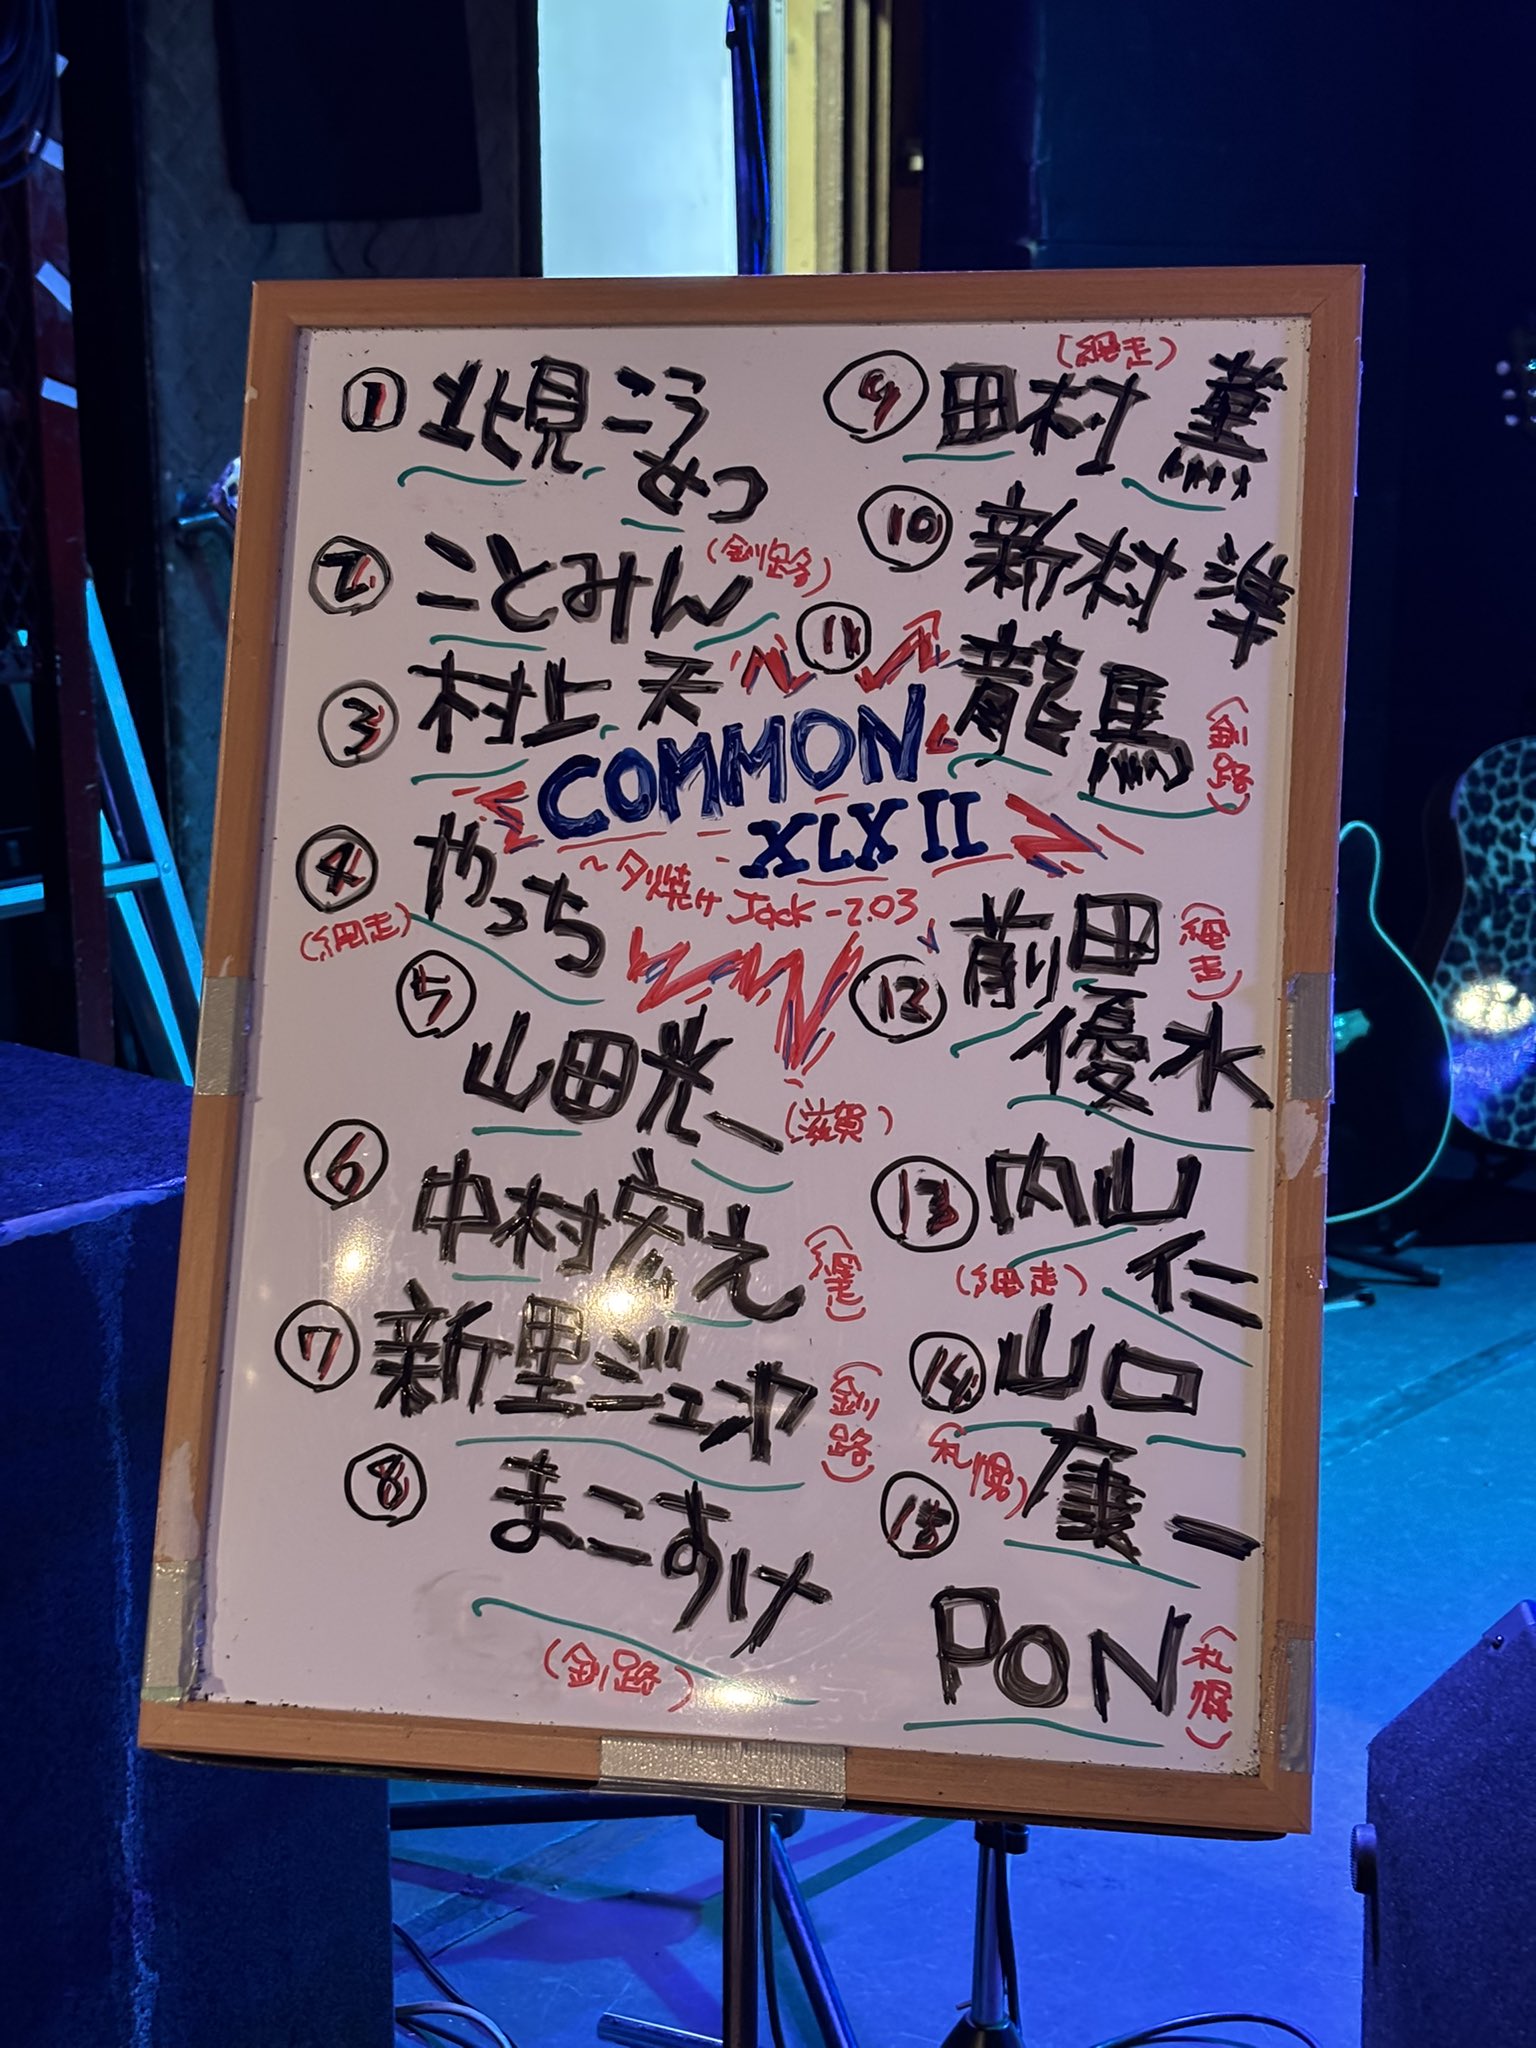 ① 北見こうみつ
② ことみん (釧路)
③ 村上 天
④ やっち (網走)
⑤ 山田光一 (滋賀)
⑥ 中村宏え (網走)
⑦ 新里ジュンヤ (釧路)
⑧ まこすけ (釧路)
COMMON
XLXII
~夕焼け Jack-2.03
⑨ 田村 薫 (網走)
⑩ 新村 準
⑪ 龍馬 (釧路)
⑫ 前田 優水 (網走)
⑬ 内山 仁 (網走)
⑭ 山口 康一 (札幌)
⑮ PON (札幌)